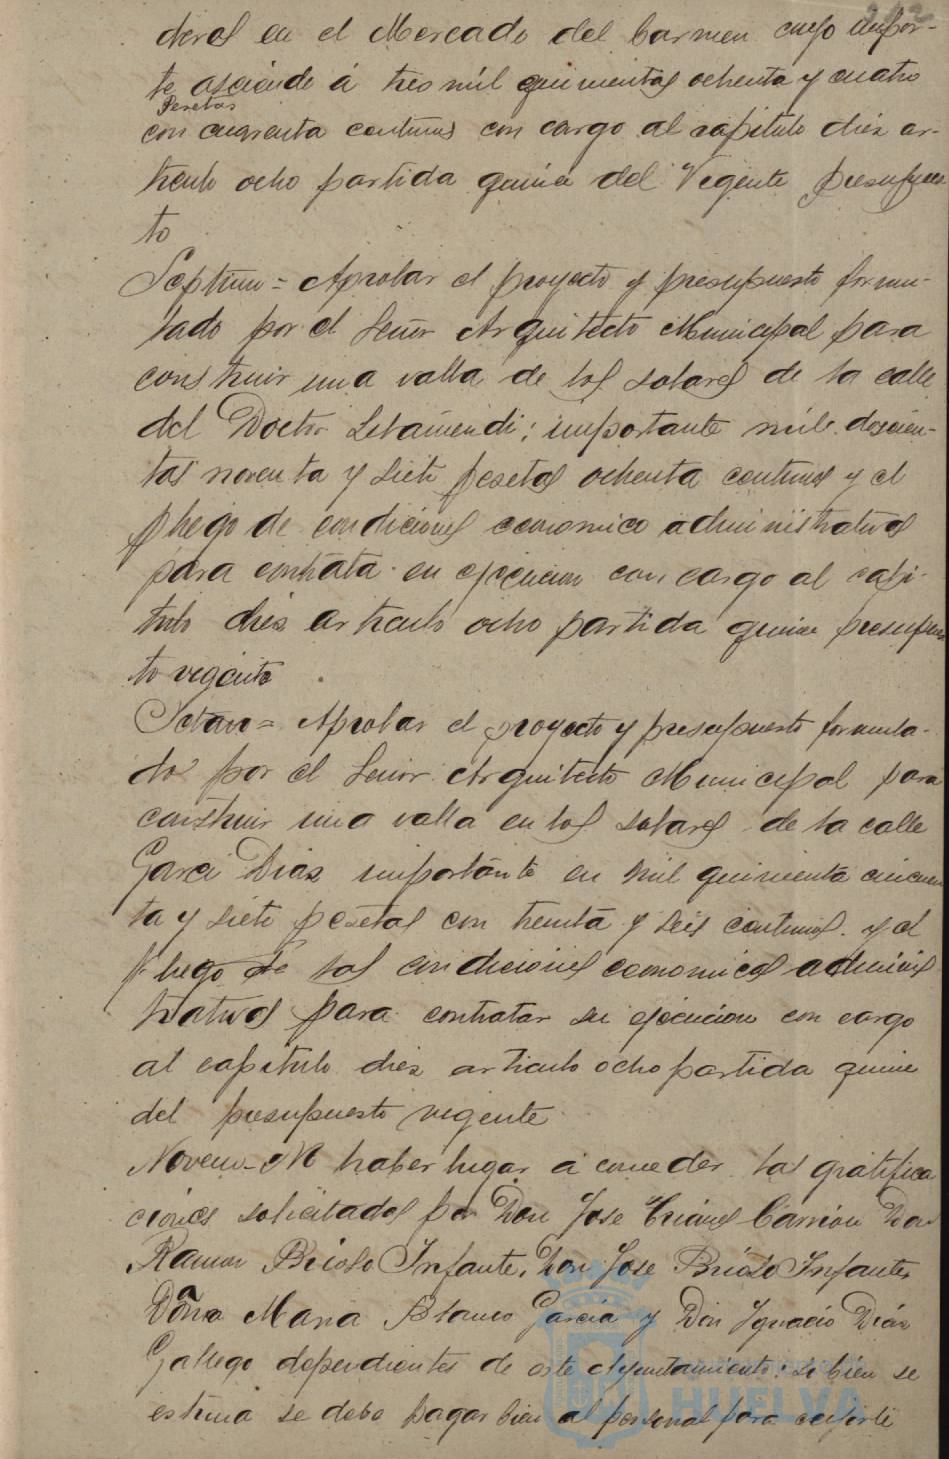 deros en el Mercado del Carmen cuyo impor-
te asciende á tres mil quinientas ochenta y cuatro
Pesetas
con cuarenta centimos con cargo al capitulo diez ar-
ticulo ocho partida quince del Vegente presupues
to
Septimo = Aprobar el proyecto y presupuesto formu-
lado por el Señor Arquitecto Municipal para
construir una valla de los solares de la calle
del Doctor Letamendi; importante mil doscien-
tas noventa y siete pesetas ochenta centimos y el
pliego de condiciones economico administrativas
para contrata en ejecucion con cargo al capi-
tulo diez articulo ocho partida quince presupues
to vegente
Octavo = Aprobar el proyecto y presupuesto formula-
do por el Senior Arquitecto Municipal para
construir una valla en los solares de la calle
Garci Dias importante en mil quinienta cincuen
ta y siete pesetas con treinta y seis centimos y el
pliego de las condiciones economicas adminis
trativas para contratar su ejecucion con cargo
al capitulo diez articulo ocho partida quince
del presupuesto vegente
Noveno - No haber lugar a conceder las gratifica
ciones solicitados por Don Jose Carrion Don
Ramon Brioso Infante, Don Jose Brioso Infantes
Dona Maria Blanco Garcia y Don Ignacio Dias
Gallego dependientes de este Ayuntamiento: si bien se
estima se debe pagar bien al personal para
HUELVA